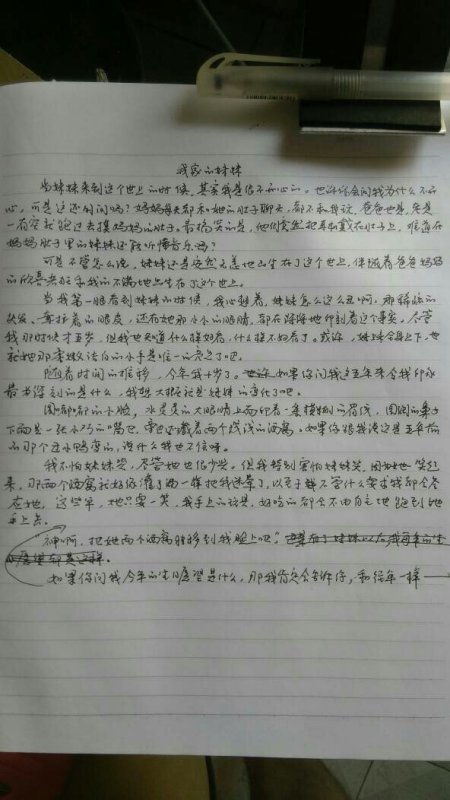 我家的妹妹
当妹妹来到这个世上的时候,其实我是很不开心的。也许你会问我为什么不开
心,可是这还用问吗?妈妈每天都和她的肚子聊天,都不和我说,爸爸也是,老是
一有空就跑过去摸妈妈的肚子。最搞笑的是,他们竟然把耳机戴在肚子上,难道在
妈妈肚子里的妹妹还能听懂音乐吗?
可是不管怎么说,妹妹还是安然无恙地出生在了这个世上,伴随着爸爸妈妈
的欣喜若狂和我的不满地出生在了这个世上。
当我第一眼看到妹妹的时候,我心想着,妹妹怎么这么丑啊,那稀疏的
头发,耷拉着的眼皮,还有她那小小的眼睛,都在深深地印刻着这个事实。尽管
我那时候才五岁,但我也知道什么叫好看,什么叫不好看了。或许,妹妹全身上下,也
就她那拳嫩洁白的小手是唯一的亮点了吧。
随着时间的推移,今年我十岁了。如果你问我这五年来令我印象
最为深刻的是什么,我想大概就是妹妹的变化了吧。
圆嘟嘟的小脸,水灵灵的大眼睛上面印着一条模糊的眉线,圆圆的鼻子
下面是一张小巧的嘴巴,旁边还藏着两个浅浅的酒窝。如果你跟我说这是五年前
的那个丑小鸭变的,说什么我也不信呀。
我不怕妹妹哭,尽管她也很少哭。但我特别害怕妹妹笑,因为她一笑起
来,那两个酒窝就好像灌了酒一样把我迷晕了,以至于无论什么要求我都会答
应她,这些年,她只要一笑,我手上的玩具,好吃的都会不由自主地跑到她
手上去。
神啊,把她两个酒窝转移到我脸上吧!
如果你问我今年的生日愿望是什么,那我肯定会告诉你,和往年一样——